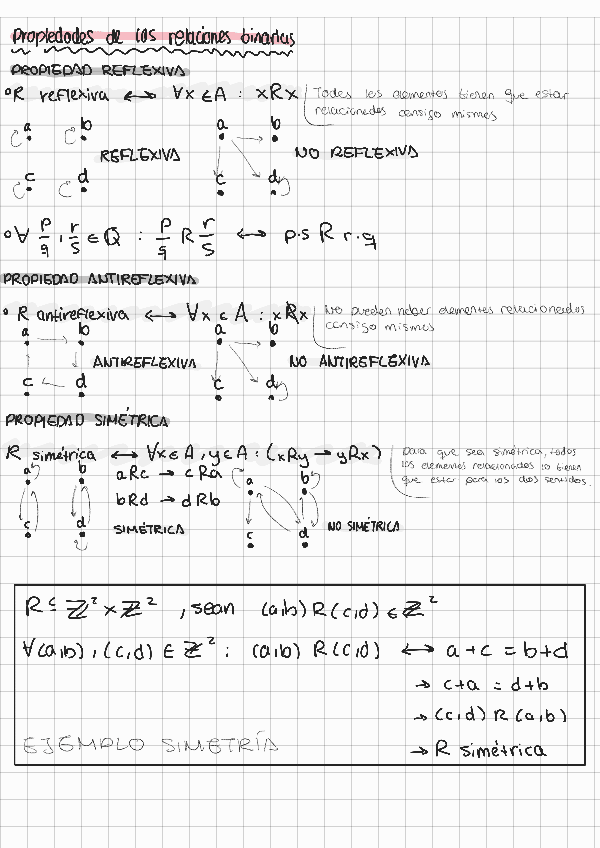 Propiedades de las relaciones binarias
PROPIEDAD REFLEXIVA
°R reflexiva ↔ ∀x ∈ A : xRx
Todos los elementos tienen que estar
relacionados consigo mismos
a b a b
REFLEXIVA NO REFLEXIVA
c d c d
°∀ p/q , r/s ∈ Q : p/q R r/s ↔ p·s R r·q
PROPIEDAD ANTIREFLEXIVA
° R antireflexiva ↔ ∀x ∈ A : x R̸ x
No pueden haber elementos relacionados
consigo mismos
a b a b
ANTIREFLEXIVA NO ANTIREFLEXIVA
c d c d
PROPIEDAD SIMÉTRICA
R simétrica ↔ ∀x ∈ A , y ∈ A : (xRy → yRx)
Para que sea simétrica, todos
los elementos relacionados lo tienen
que estar para los dos sentidos.
a b aRc → cRa a b
bRd → dRb
c d SIMÉTRICA c d NO SIMÉTRICA
R ⊆ Z² × Z² , sean (a,b) R (c,d) ∈ Z²
∀(a,b) , (c,d) ∈ Z² : (a,b) R (c,d) ↔ a+c = b+d
→ c+a = d+b
→ (c,d) R (a,b)
EJEMPLO SIMETRÍA → R simétrica